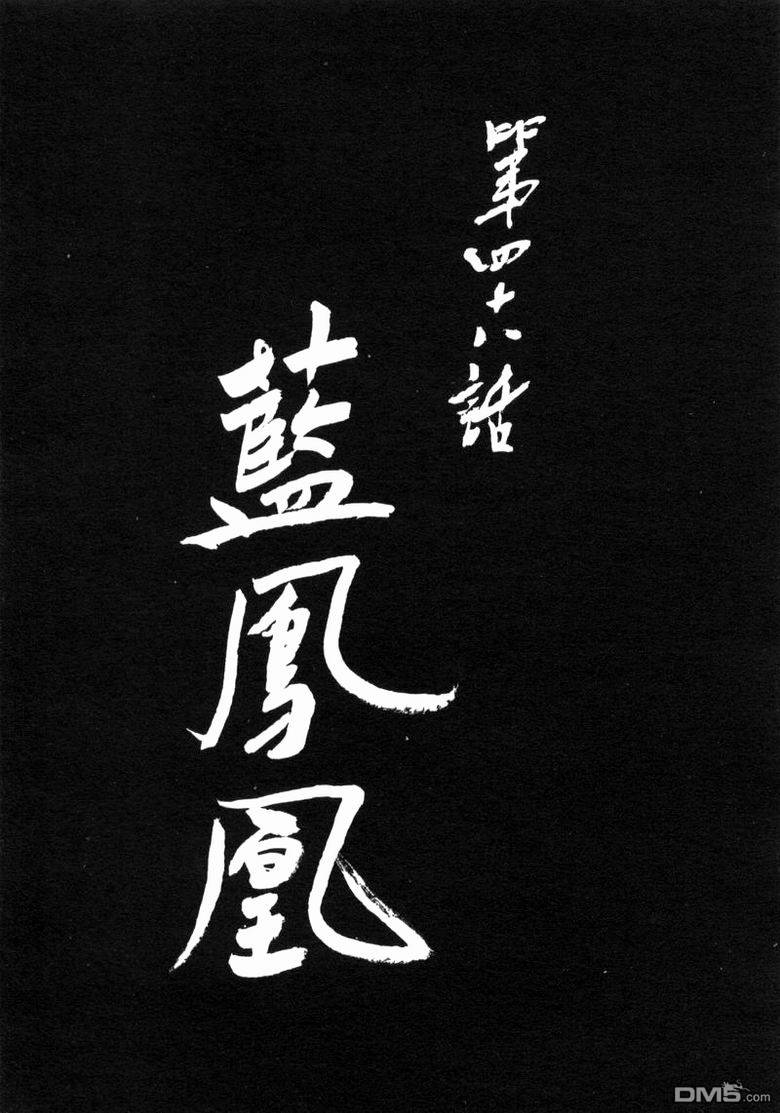 第四十八話
藍鳳凰
DM5.com